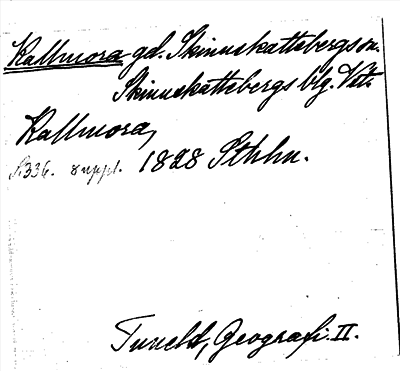 Kallmora gd. Skinnskattebergs sn.
Skinnskattebergs blg. Vstm.
Kallmora,
S. 336. suppl. 1828 Sthlm.
Tuneld, Geografi. II.